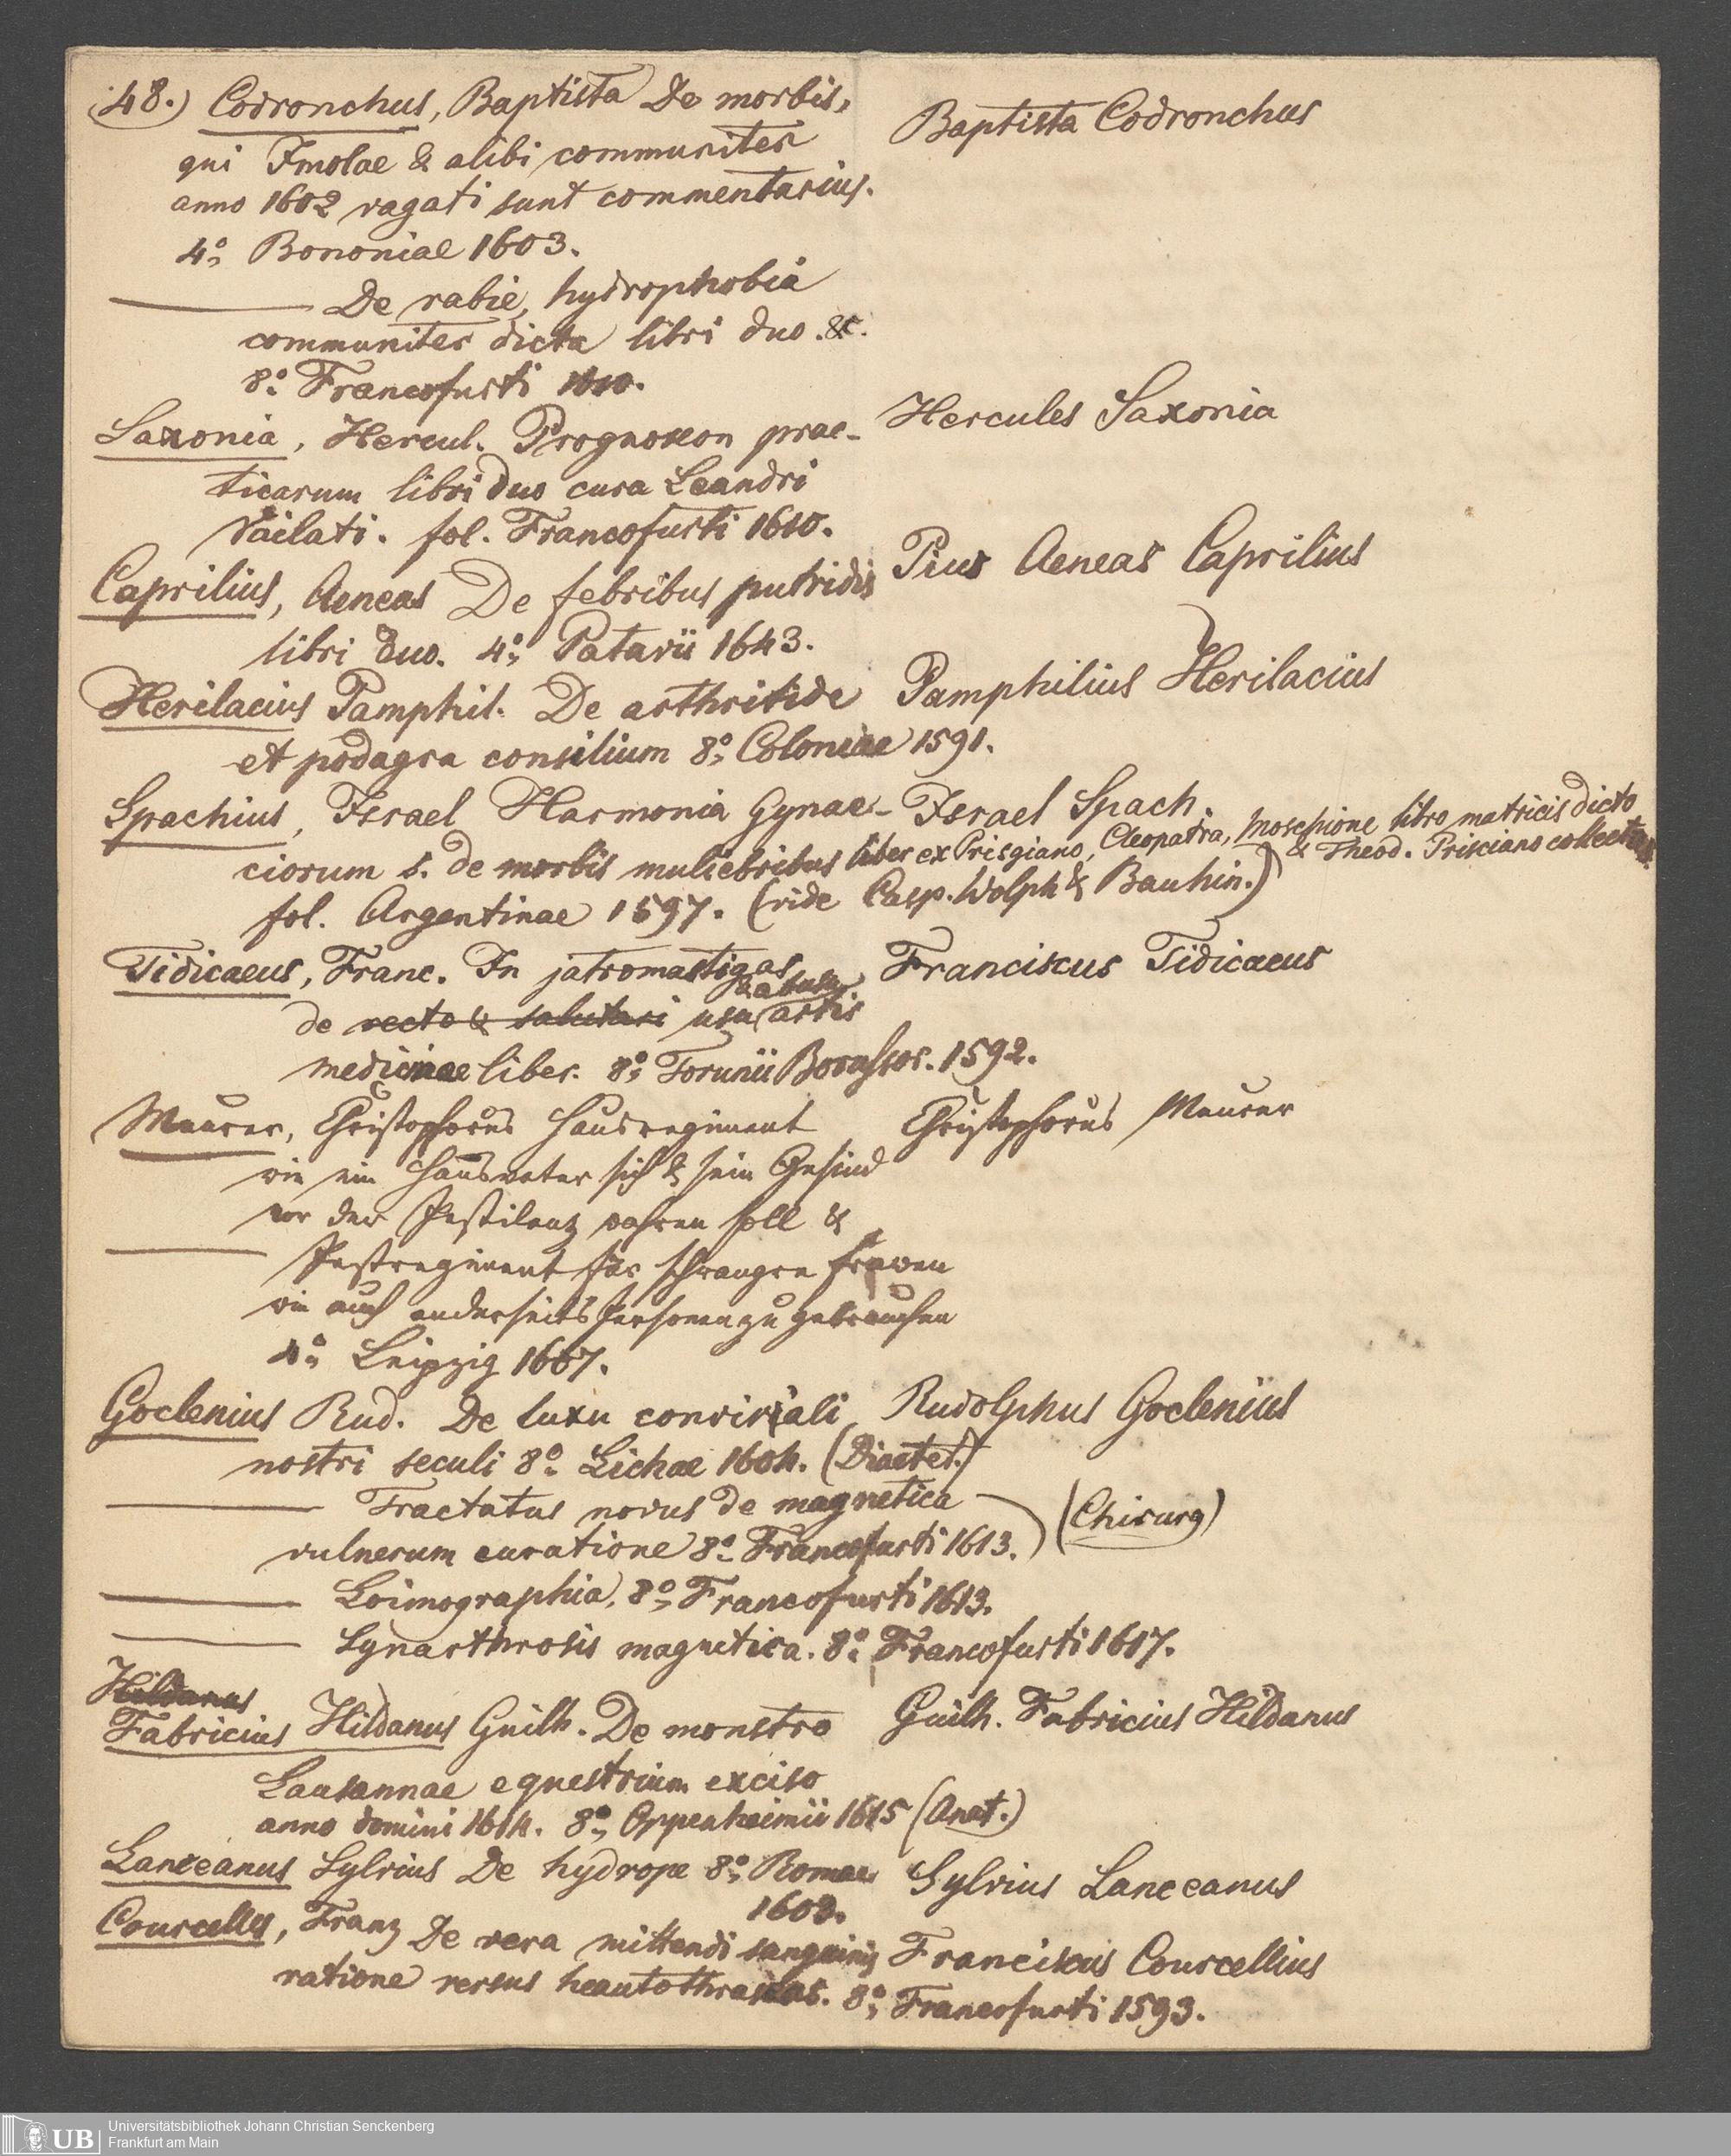 48.) Codronchus, Baptista De morbis,
qui Imolae & alibi communiter
anno 1602 vagati sunt commentarius.
4°, Bononiae 1603.
Baptista Codronchus
De rabie, hydrophobia
communiter dicta libri duo. &c.
8° Francofurti 1610.
Saxonia, Hercul. Prognoseon prac-
ticarum libri duo cura Leandri
Vailati. fol. Francofurti 1610.
Hercules Saxonia
Caprilius, Aeneas De febribus putridis
libri duo. 4°, Patavii 1643.
Pius Aeneas Caprilius
Herilacius Pamphil. De arthritide
et podagra consilium 8°, Coloniae 1591.
Pamphilius Herilacius
Spachius, Israel Harmonia Gynae-
ciorum s. de morbis muliebribus liber ex Prisgiano, Cleopatra, Moschione libro matricis dicto
& Theod. Prisciano collectus.
fol. Argentinae 1597. (vide Casp. Wolph & Bauhin.)
Israel Spach.
Tidicaeus, Franc. In jatromastigas
de recto & salutari usu & abusu artis
medicinae liber. 8°, Torunii Borussor. 1592.
Franciscus Tidicaeus
Maurer, Christophorus Hausregiment
wie ein Hausvater sich & sein Gesind
vor der Pestilenz wahren soll &
Christophorus Maurer
Pestregiment für schwangre frawen
wie auch anderseits Personen zu gebrauchen
4° Leipzig 1667.
Goclenius Rud. De luxu conviviali
nostri seculi 8° Lichae 1604. (Diaetet.)
Rudolphus Goclenius
Tractatus novus de magnetica
vulnerum curatione 8° Francofurti 1613.
(Chirurg)
Loimographia, 8°, Francofurti 1613.
Synarthrosis magnetica. 8° Francofurti 1617.
Hildanus
Fabricius Hildanus Guilh. De monstro
Lausannae equestrium exciso
anno domini 1614. 8°, Oppenheimii 1615 (Anat.)
Guilh. Fabricius Hildanus
Lanceanus Sylvius De hydrope 8°, Romae
1603.
Sylvius Lanceanus
Courcelles, Franz De vera mittendi sanguinis
ratione versus heautothrasos. 8°, Francofurti 1593.
Franciscus Courcellius
UB Universitätsbibliothek Johann Christian Senckenberg
Frankfurt am Main